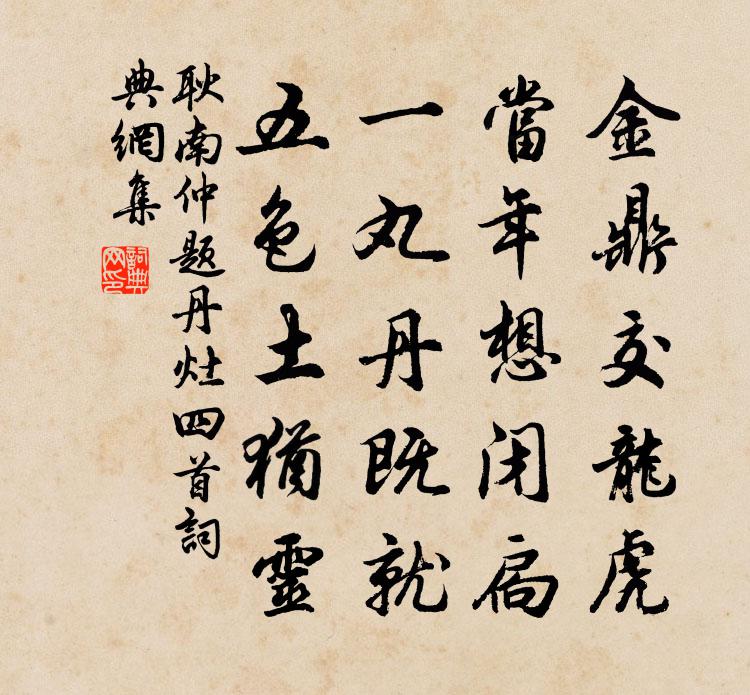 金鼎交龍虎
當年想闭扃
一丸丹既就
五色土猶靈
耿南仲题丹灶四首詞
典網集
詞典
网印